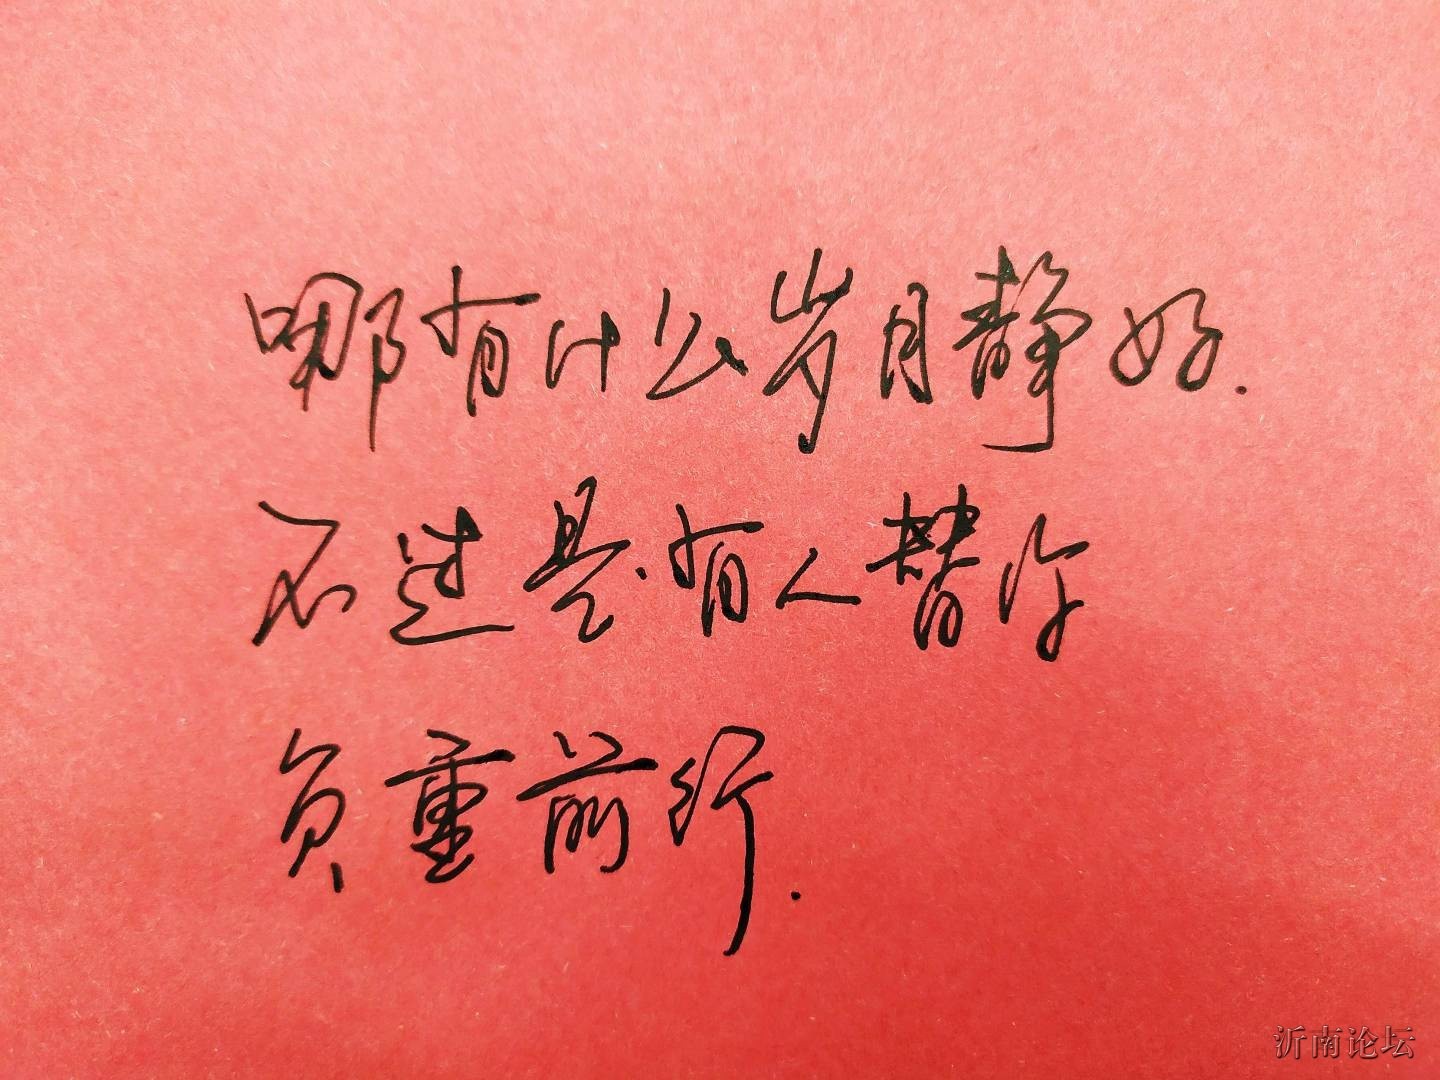 哪有什么岁月静好.
不过是.有人替你
负重前行.
沂南论坛